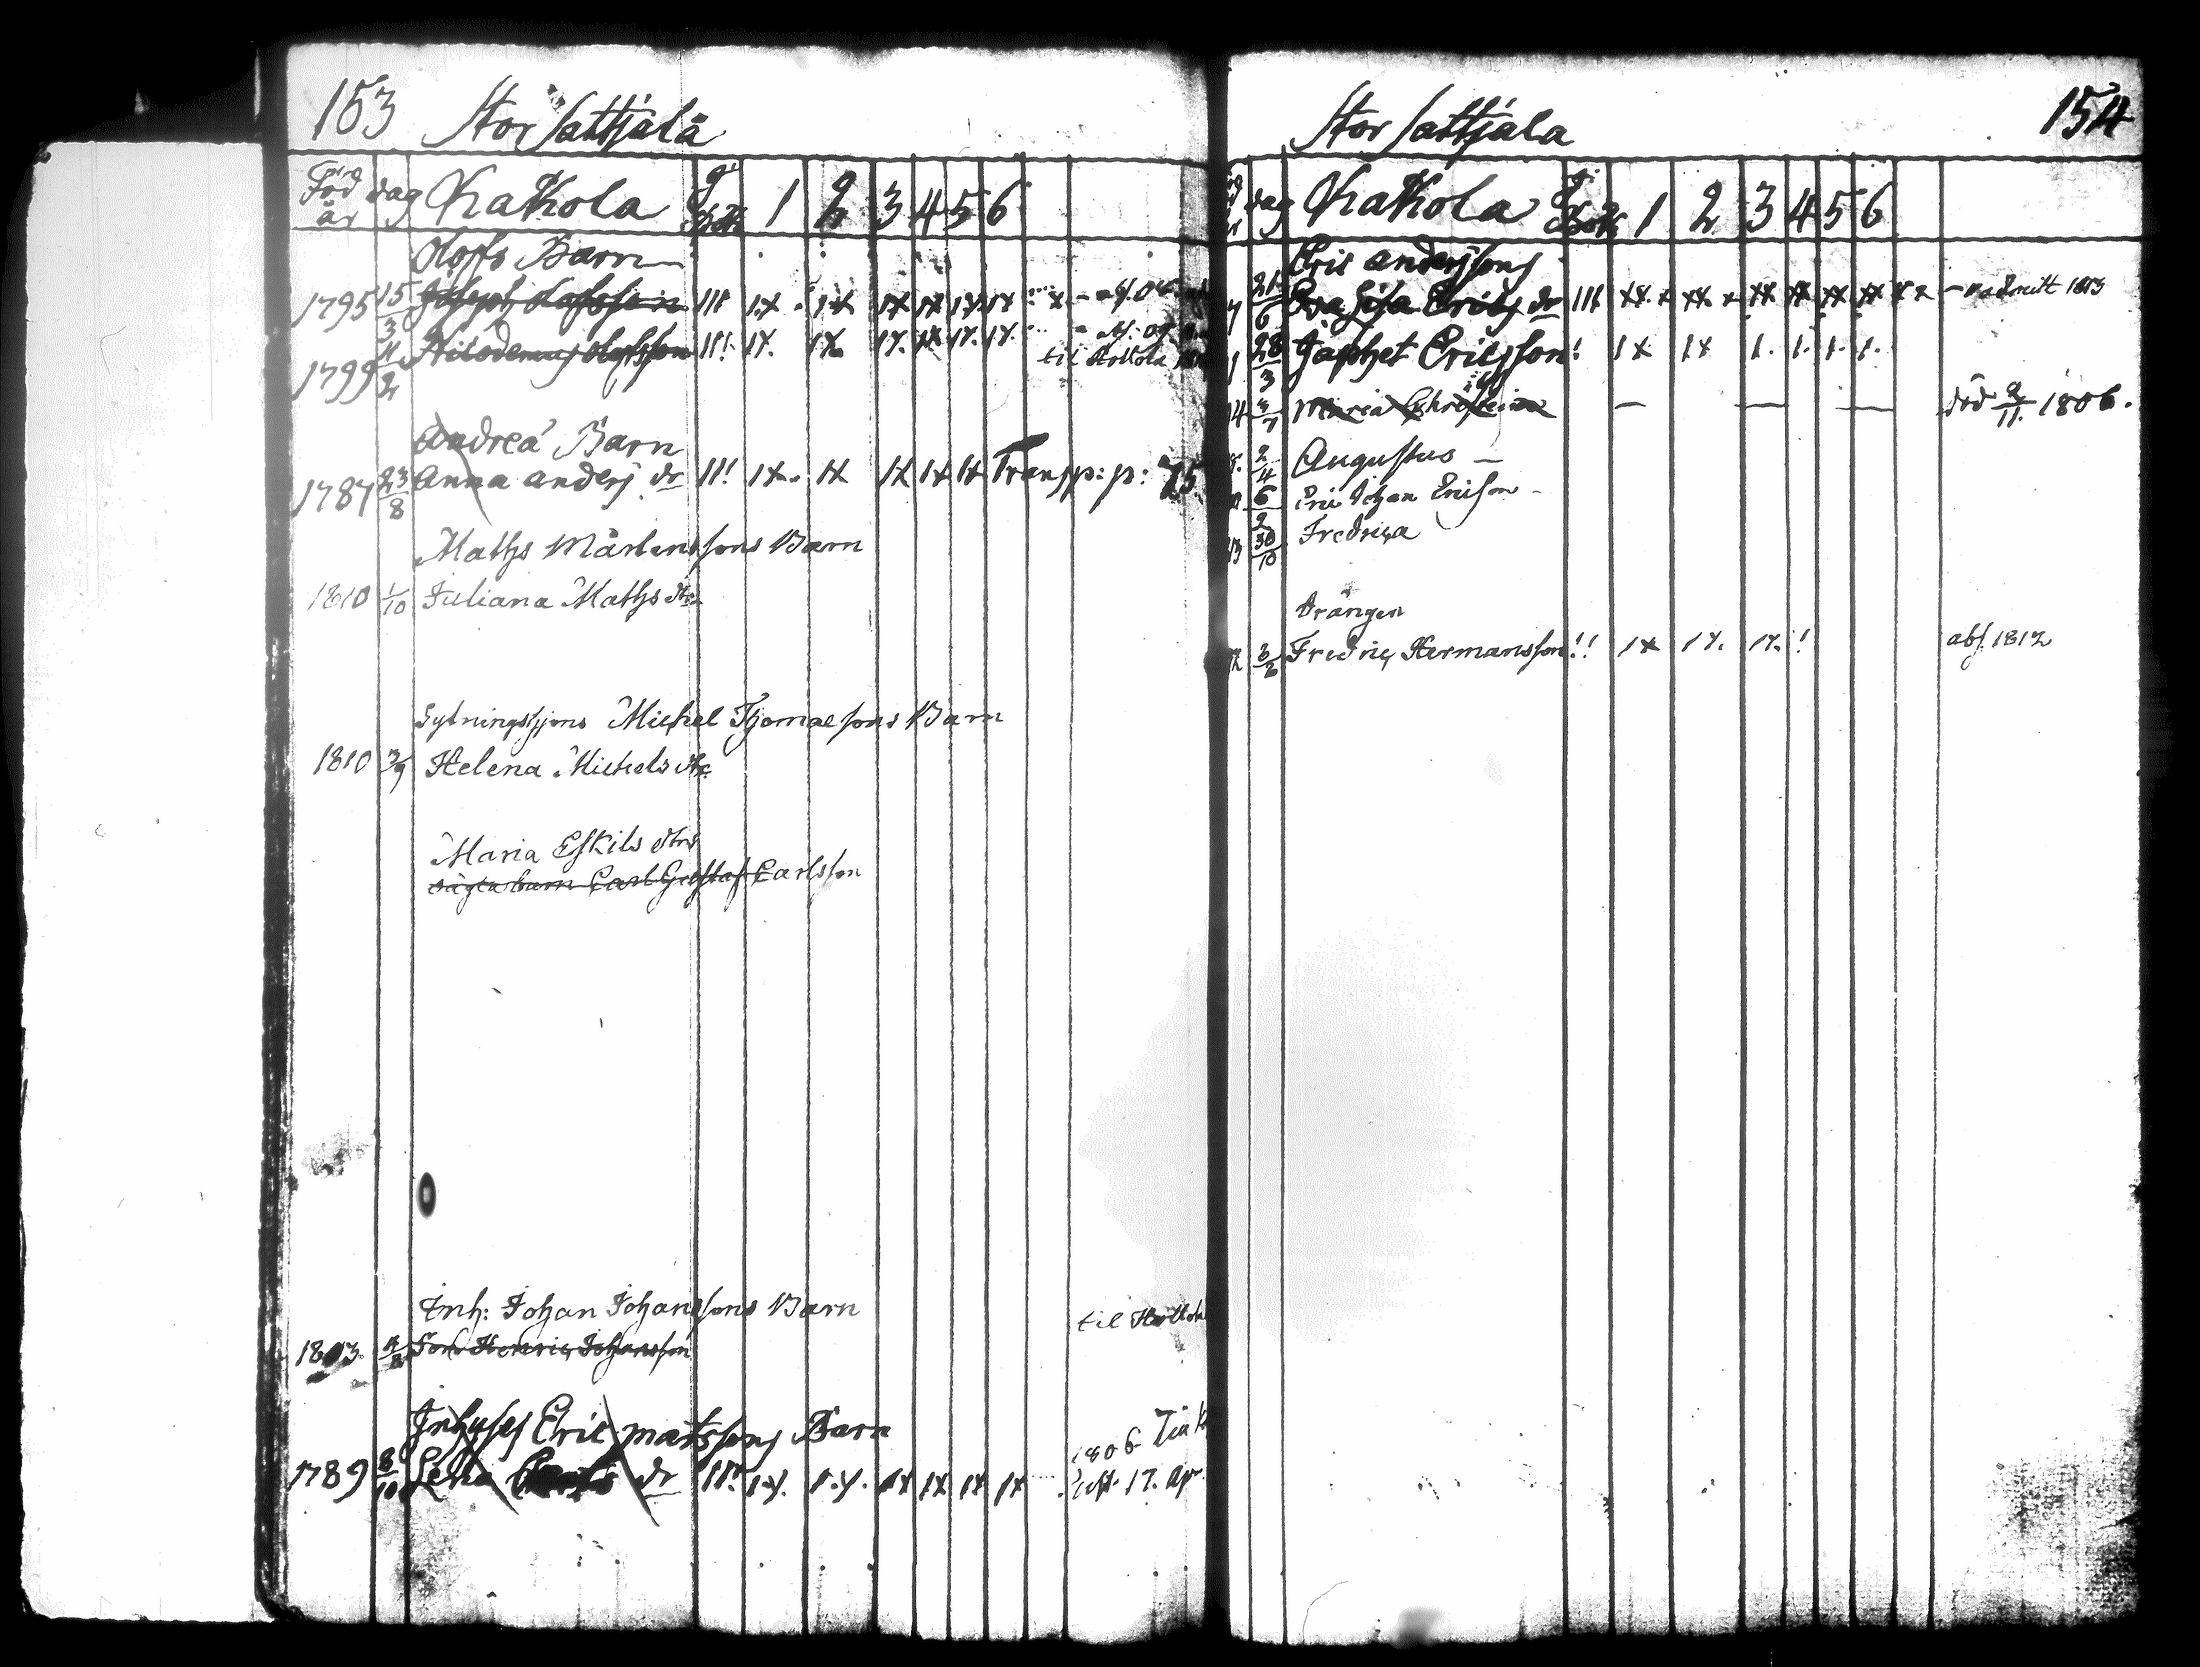 153 Storsattjala
Föd år dag Kakola g. Bok 1 2 3 4 5 6
Oloffs Barn
1795 15/3 Joseph Olofsson 111 1x. 1x 1x 1x 1x 1x x
1799 11/2 Nicodemus Olofsson 11! 1x. 1x 1x. 1x 1x. 1x.
til
Andreæ Barn
1787 23/8 Anna anders dr 11! 1x. 1x 1x 1x 1x Transp: p: 75
Maths Mårtenssons Barn
1810 1/10 Juliana Maths dtr
Sytningshjons Michel Thomaesons Barn
1810 3/9 Helena Michels dtr
Maria Eskils dtrs
oägta barn Carl Gustaf Carlsson
Inh: Johan Johanssons Barn
til
1803 Henric Johansson
Inhyses Eric matssons Barn
1806
1789 8/10 Lena dr 11! 1x. 1.x. 1x 1x 1x 1x 17. Apr
Storsattjala 154
dag Kakola g. Bok 1 2 3 4 5 6
Eric anderssons
21/6 Eva Lisa Erics dr 111 xx. x xx. x xx xx xx xx x x 1813
28/3 Japhet Ericsson! 1x 1x 1. 1. 1. 1.
4 3/7 Maria Christina — — — död 9/11. 1806.
2/4 Augustus —
6/2 Eric Johan Ericson -
13 30/10 Fredrica
Drängen
2 3/2 Fredric Hermansson!! 1x 1x. 1x.! abs. 1812